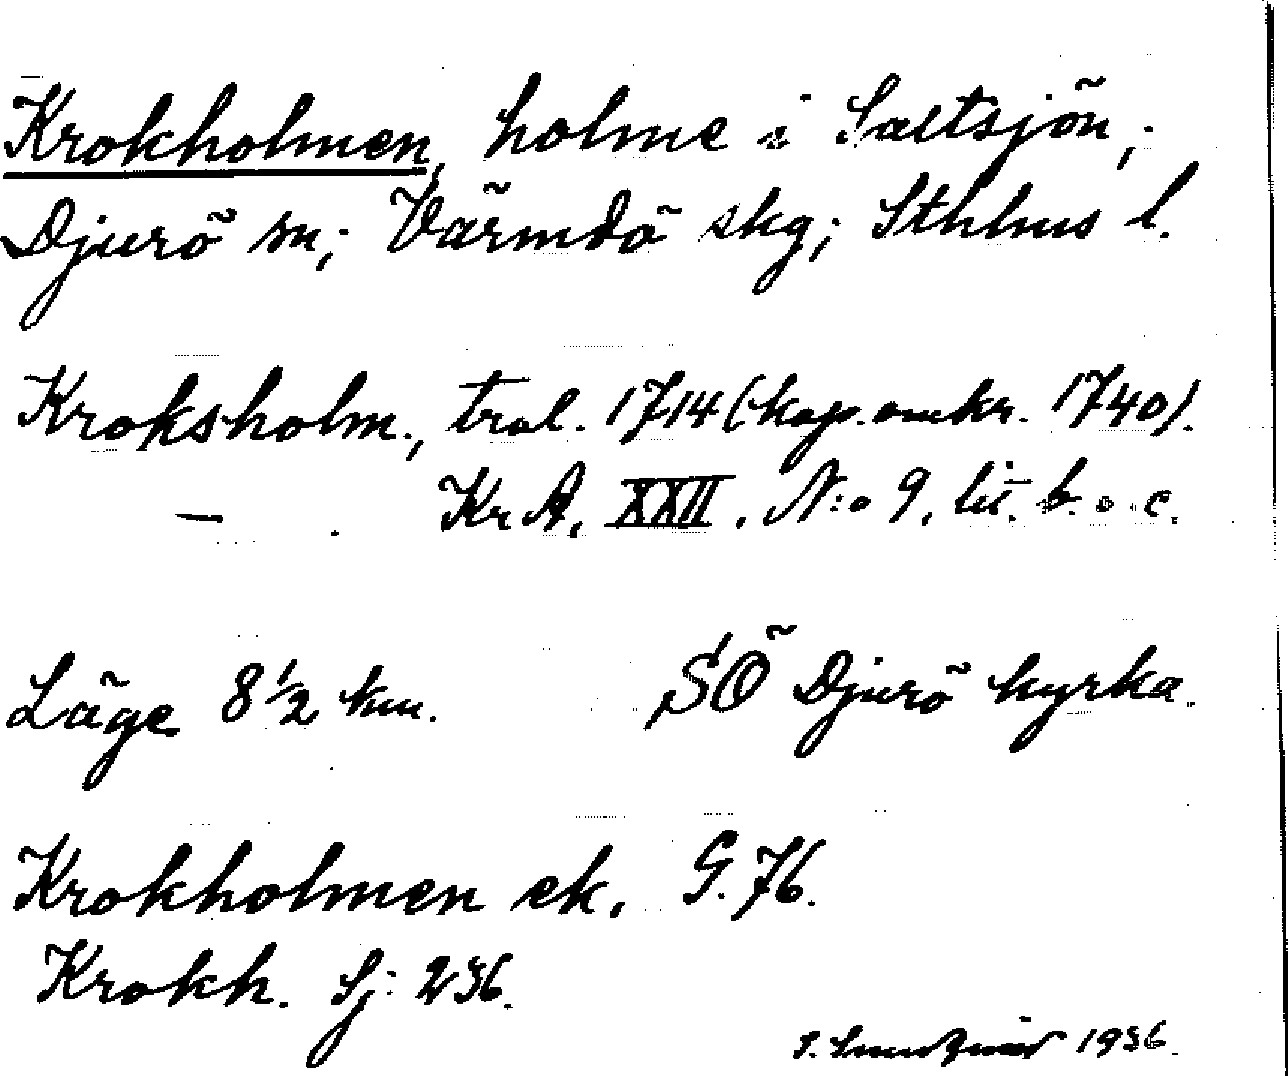 Krokholmen, holme i Saltsjön,
Djurö sn; Värmdö skg; Sthlms l.
Kroksholm., tral. 1714 (kop. omkr. 1740).
— . Kr A, XXII. N:o 9, lit. b. o. c.
Läge 8 1/2 km. SÖ Djurö kyrka.
Krokholmen ek. G. 76.
Krokh. Sj: 236.
1936.